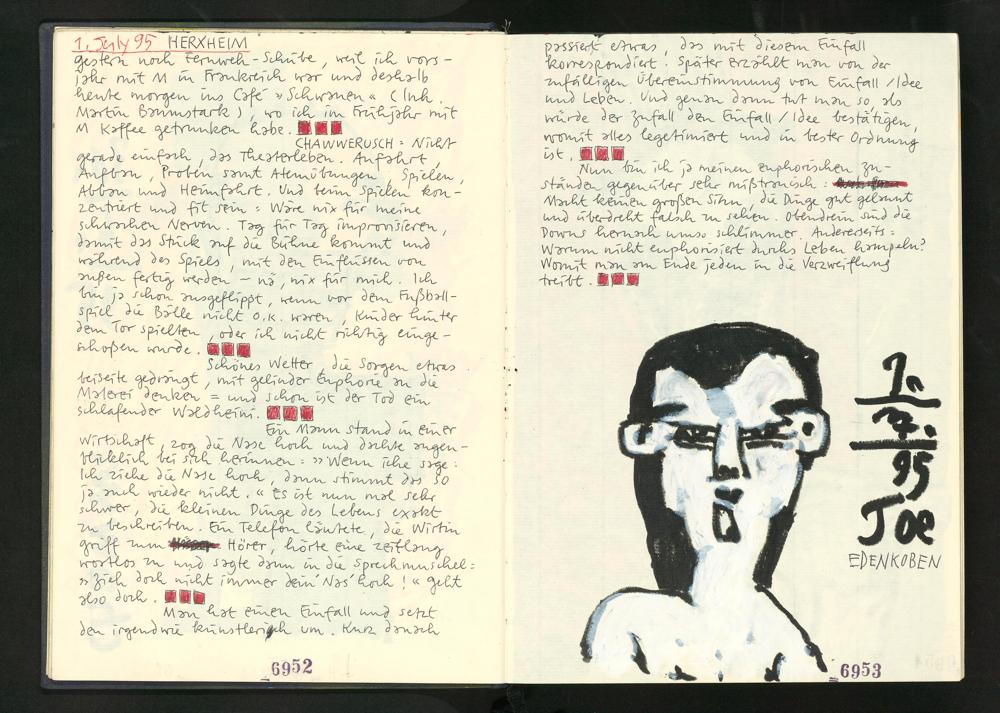 1. July 95 HERXHEIM
gestern noch Fernweh-Schübe, weil ich vors-
jahr mit M in Frankreich war und deshalb
heute morgen ins Café »Schwanen« (Inh.
Martin Baumstark), wo ich im Frühjahr mit
M Kaffee getrunken habe.
CHAWWERUSCH = Nicht
gerade einfach, das Theaterleben. Anfahrt,
Aufbau, Proben samt Atemübungen, Spielen,
Abbau und Heimfahrt. Und beim Spielen kon-
zentriert und fit sein = Wäre nix für meine
schwachen Nerven. Tag für Tag improvisieren,
damit das Stück auf die Bühne kommt und
während des Spiels, mit den Einflüssen von
außen fertig werden – nä, nix für mich. Ich
bin ja schon ausgeflippt, wenn vor dem Fußball-
spiel die Bälle nicht o.k. waren, Kinder hinter
dem Tor spielten, oder ich nicht richtig einge-
schoßen wurde.
Schönes Wetter, die Sorgen etwas
beiseite gedrängt, mit gelinder Euphorie an die
Malerei denken = und schon ist der Tod ein
schlafender Waldheini.
Ein Mann stand in einer
Wirtschaft, zog die Nase hoch und dachte augen-
blicklich bei sich herinnen = »Wenn iche sage:
Ich ziehe die Nase hoch, dann stimmt das so
ja auch wieder nicht.« Es ist nun mal sehr
schwer, die kleinen Dinge des Lebens exakt
zu beschreiben. Ein Telefon läutete, die Wirtin
griff zum Hörer, hörte eine zeitlang
wortlos zu und sagte dann in die Sprechmuschel =
»Zieh doch nicht immer dein' Nas' hoch!« Geht
also doch.
Man hat einen Einfall und setzt
den irgendwie künstlerisch um. Kurz danach
6952
passiert etwas, das mit diesem Einfall
korrespondiert. Später erzählt man von der
zufälligen Übereinstimmung von Einfall/Idee
und Leben. Und genau dann tut man so, als
würde der Zufall den Einfall/Idee bestätigen,
womit alles legitimiert und in bester Ordnung
ist.
Nun bin ich ja meinen euphorischen Zu-
ständen gegenüber sehr mißtrauisch:
Macht keinen großen Sinn, die Dinge gut gelaunt
und überdreht falsch zu sehen. Obendrein sind die
Downs hernach umso schlimmer. Andererseits:
Warum nicht euphorisiert durchs Leben hampeln?
Womit man am Ende jeden in die Verzweiflung
treibt.
1n
7.
95
Joe
EDENKOBEN
6953